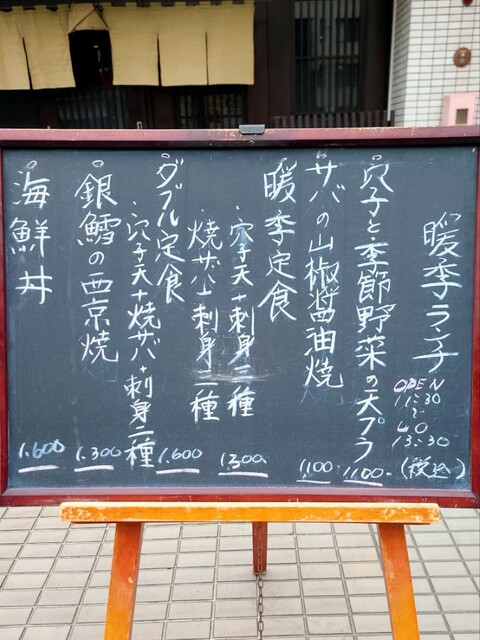 暖季ランチ
OPEN
11:30
〜
LO
13:30
(税込)
穴子と季節野菜の天プラ
1,100
サバの山椒醤油焼
1,100
暖季定食
・穴子天+刺身二種
焼サバ+刺身二種
1,300
ダブル定食
・穴子天+焼サバ+刺身二種
1,600
銀鱈の西京焼
1,300
海鮮丼
1,600